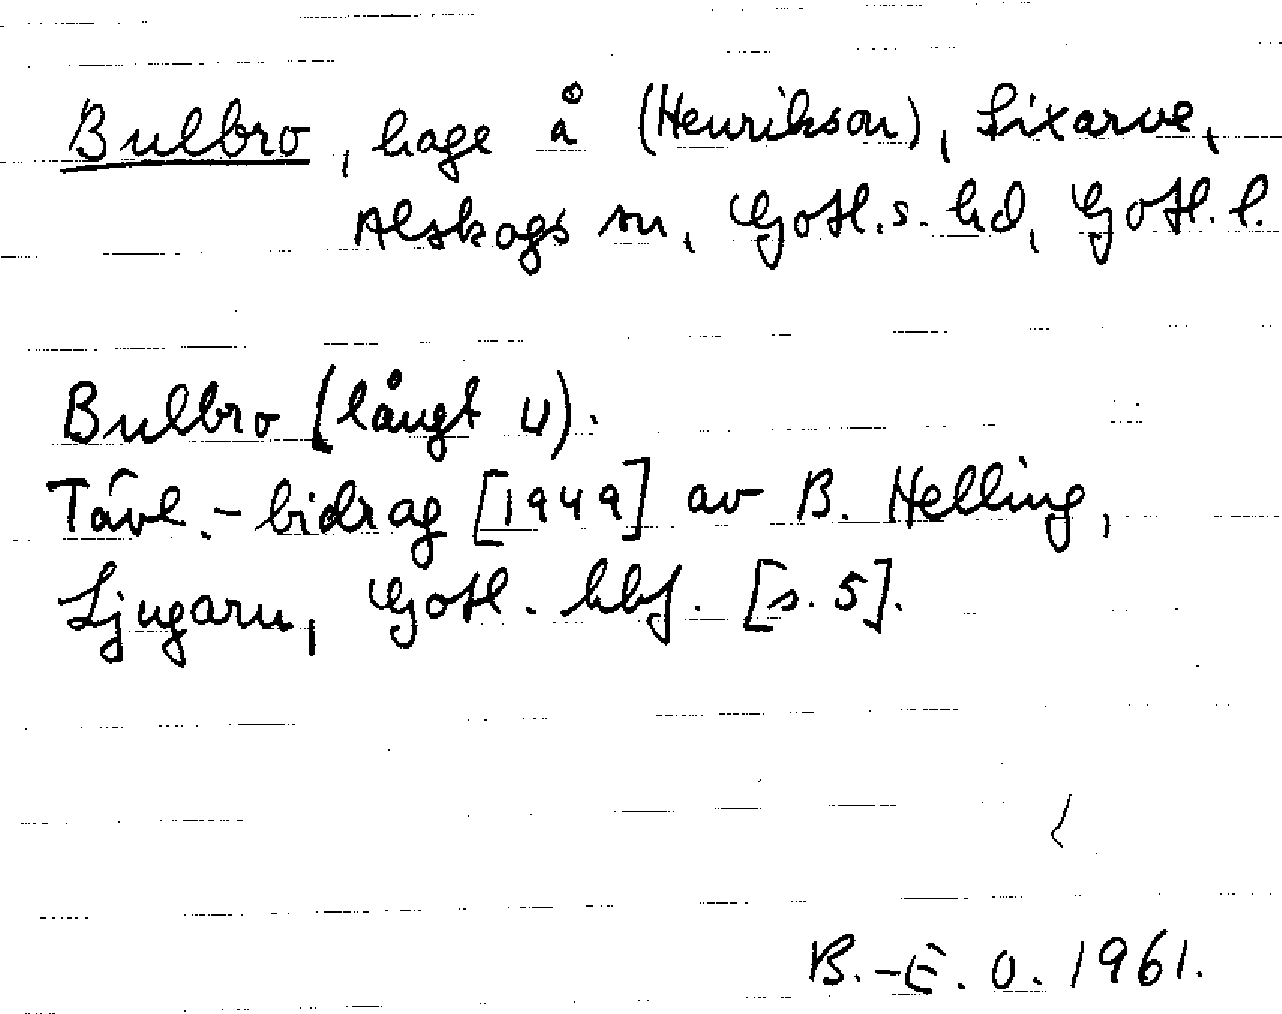 Bulbro, hage å (Henrikson), Lixarve,
Alskogs sn, Gotl.s. hd, Gotl. l.
Bulbro (långt u).
Tävl.-bidrag [1949] av B. Helling,
Ljugarn, Gotl. hbf. [s. 5].
B.-E. O. 1961.